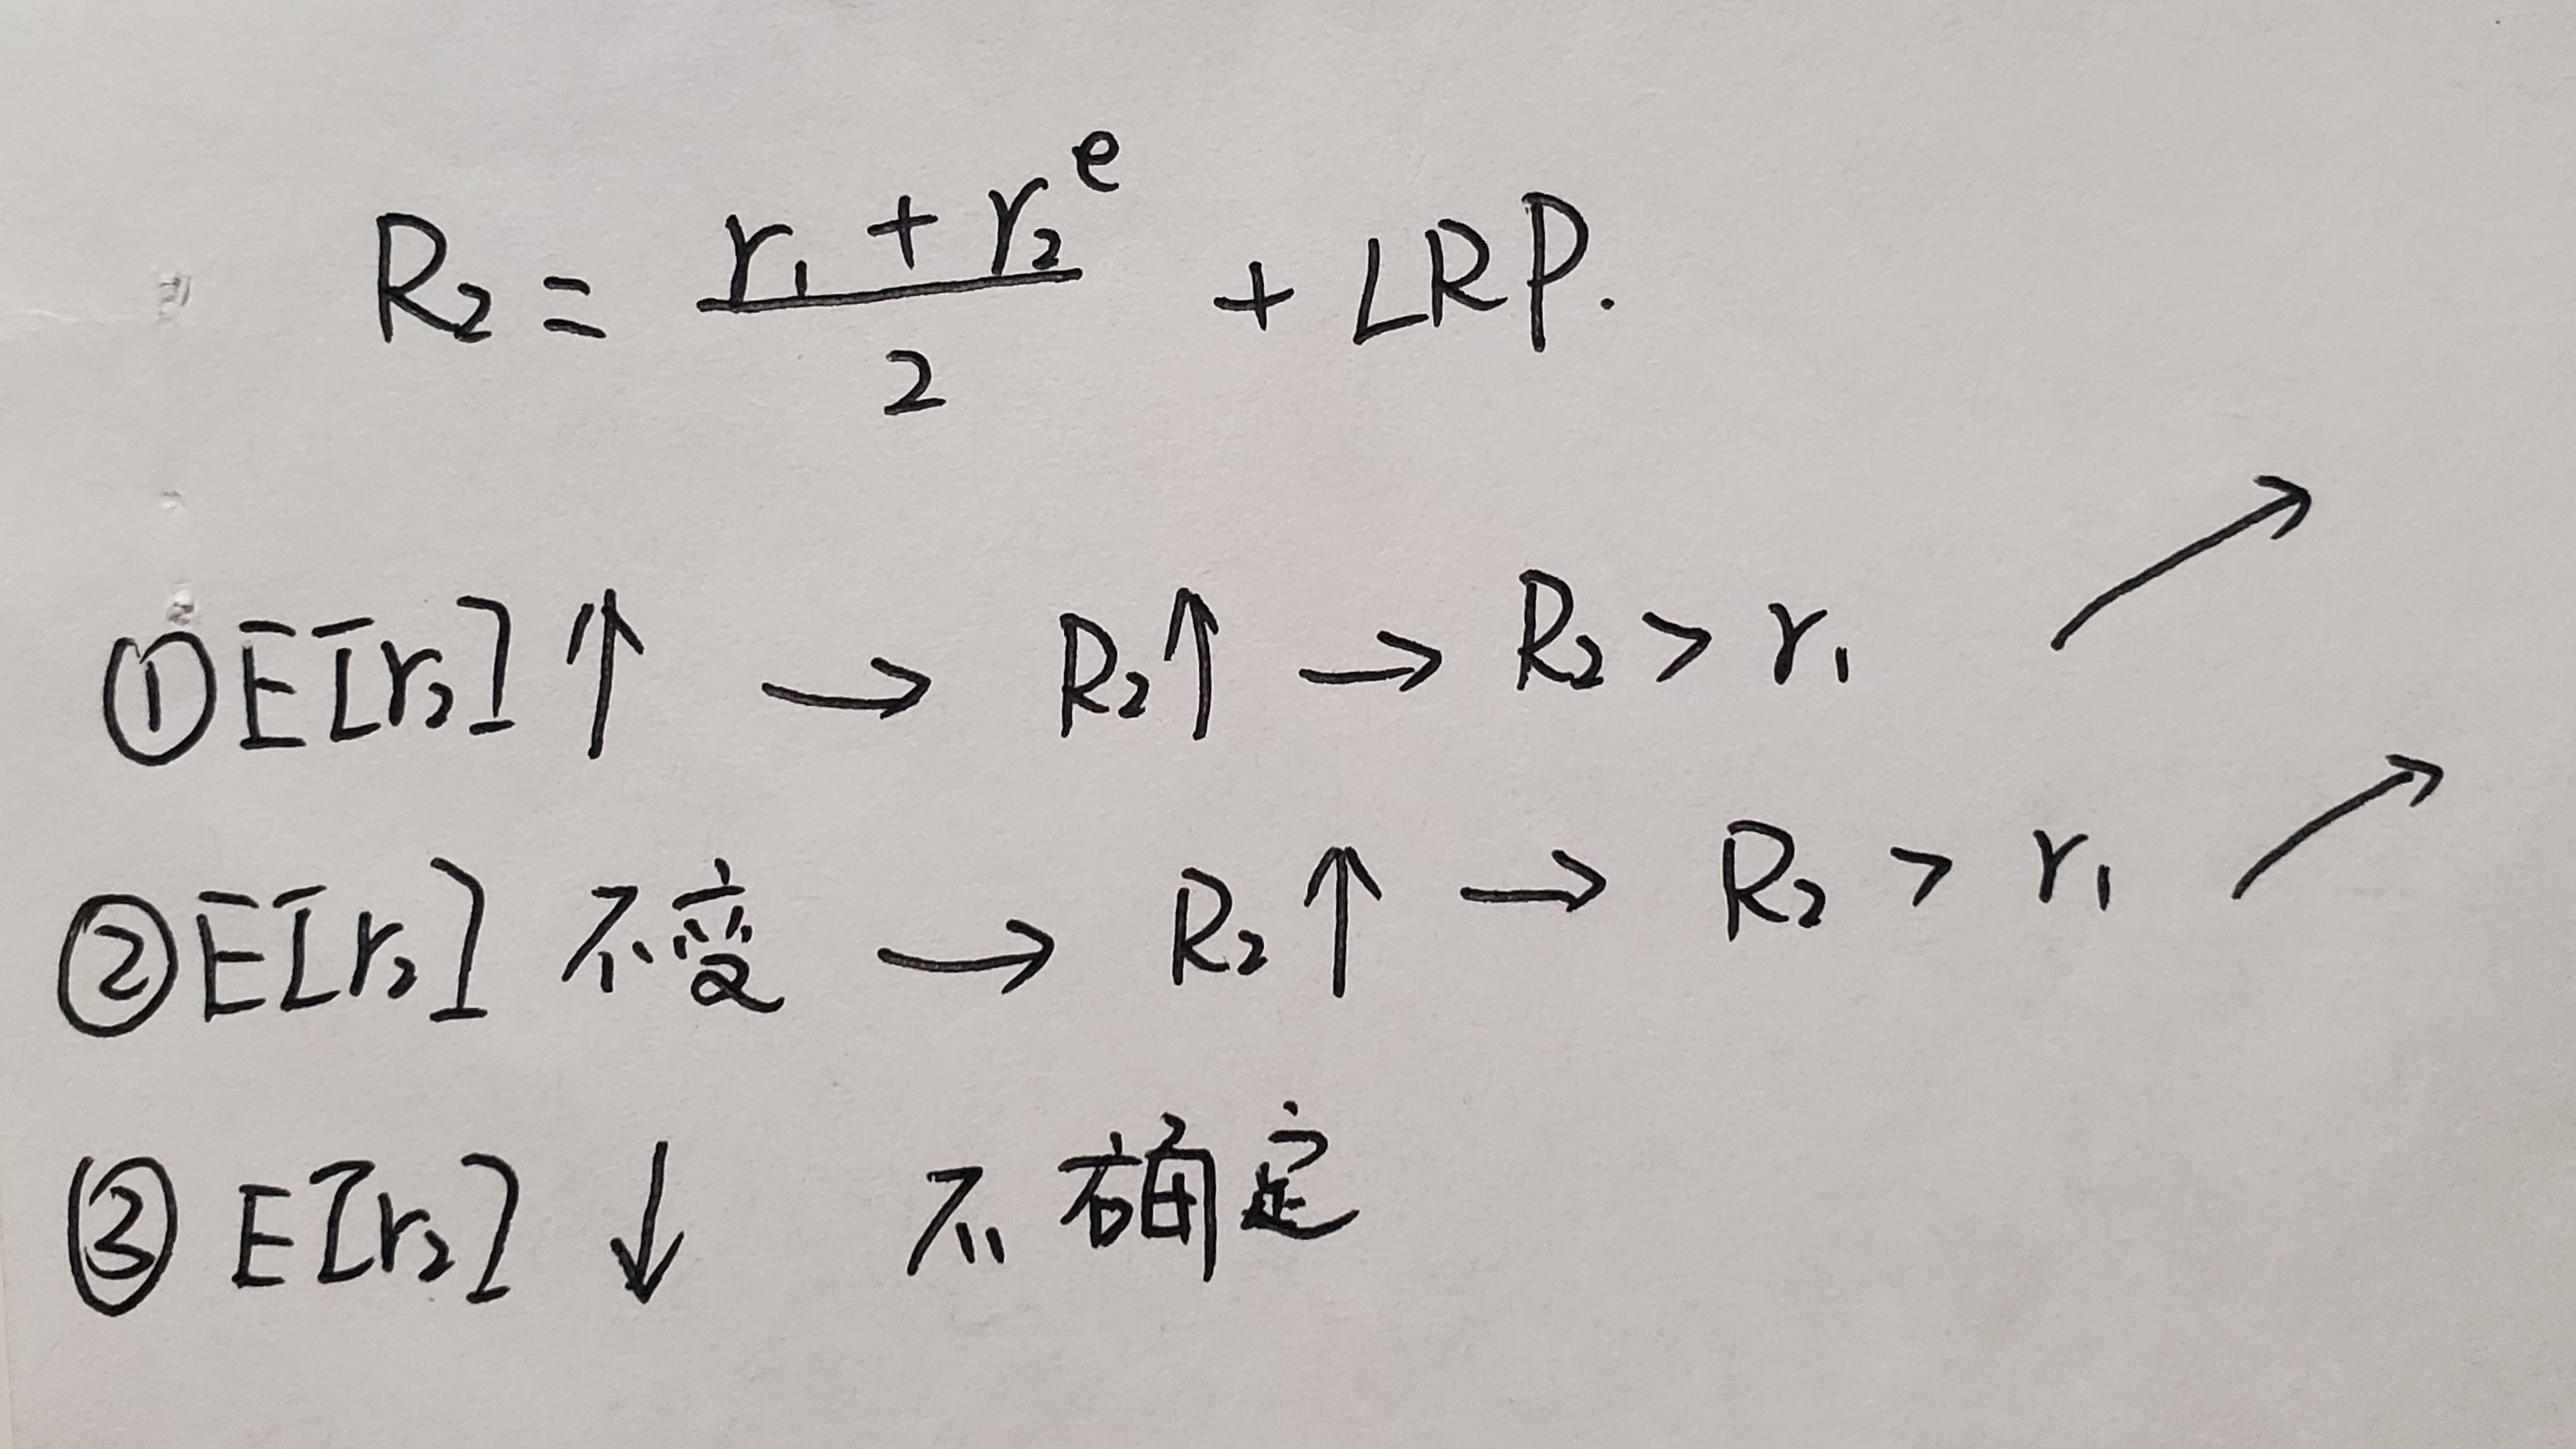 R₂ = (r₁ + r₂ᵉ)/2 + LRP.
①E[r₂]↑ → R₂↑ → R₂ > r₁ ↗
②E[r₂] 不变 → R₂↑ → R₂ > r₁ ↗
③ E[r₂] ↓ 不确定